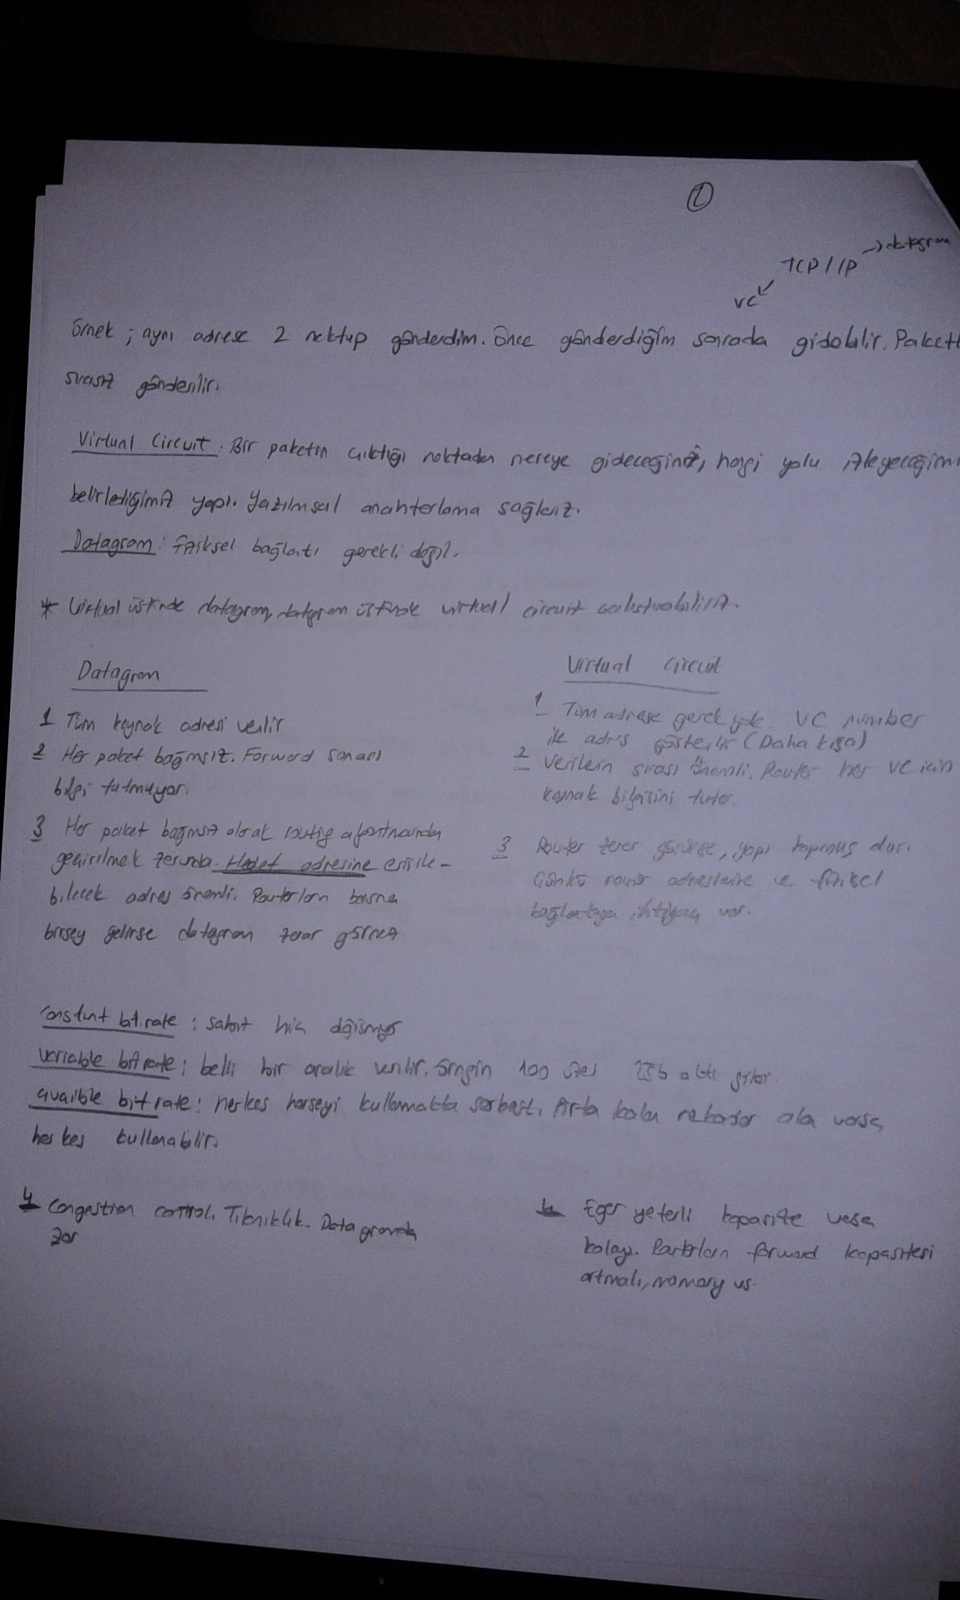 2
TCP/IP → datagram
VC
Örnek; aynı adrese 2 mektup gönderdim. Önce gönderdiğim sonrada gidebilir. Paketl
sırasız gönderilir.
Virtual Circuit: Bir paketin çıktığı noktadan nereye gideceğini, hangi yolu izleyeceğini
belirlediğimiz yapı. Yazılımsal anahtarlama sağlarız.
Datagram: Fiziksel bağlantı gerekli değil.
* Virtual üstünde datagram, datagram üstünde virtual circuit çalıştırabiliriz.
Datagram
1 Tüm kaynak adresi verilir
2 Her paket bağımsız. Forward sonrası
bilgi tutmuyor.
3 Her paket bağımsız olarak routing algoritmasından
geçirilmek zorunda. Hedef adresine erişile-
bilecek adres önemli. Routerların başına
birşey gelirse datagram zarar görmez
Virtual Circuit
1 Tüm adrese gerek yok. VC number
ile adres gösterilir (Daha kısa)
2 Verilerin sırası önemli. Router her VC için
kaynak bilgisini tutar.
3 Router zarar görürse, yapı kopmuş olur.
Çünkü router adreslerine ve fiziksel
bağlantıya ihtiyaç var.
Constant bit rate: sabit hiç değişmiyor
variable bit rate: belli bir aralık verilir. Örneğin 100 üstü 256 altı gibi.
avaible bit rate: herkes herşeyi kullanmakta serbest. Arta kalan nekadar alan varsa
herkes kullanabilir.
4 Congestion control. Tıkanıklık. Datagramda
zor
4 Eğer yeterli kapasite varsa
kolay. Routerların forward kapasitesi
artmalı, memory vs.